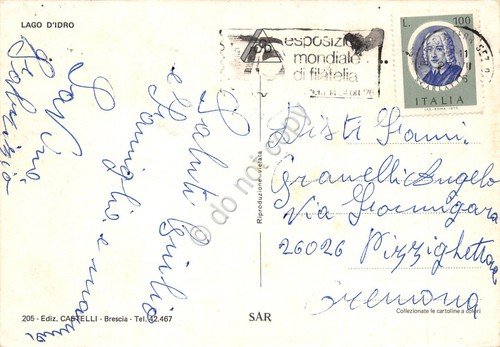 LAGO D'IDRO
esposizione
mondiale
di filatelia
L. 100
ITALIA
Saluti Giulio
e Famiglia e mamma
Savino
Fabrizio
Riproduzione vietata
do not copy
Gianni
Granelli Angelo
Via
26026 Pizzighettone
Cremona
205 - Ediz. CASTELLI - Brescia - Tel. 42.467
SAR
Collezionate le cartoline a colori